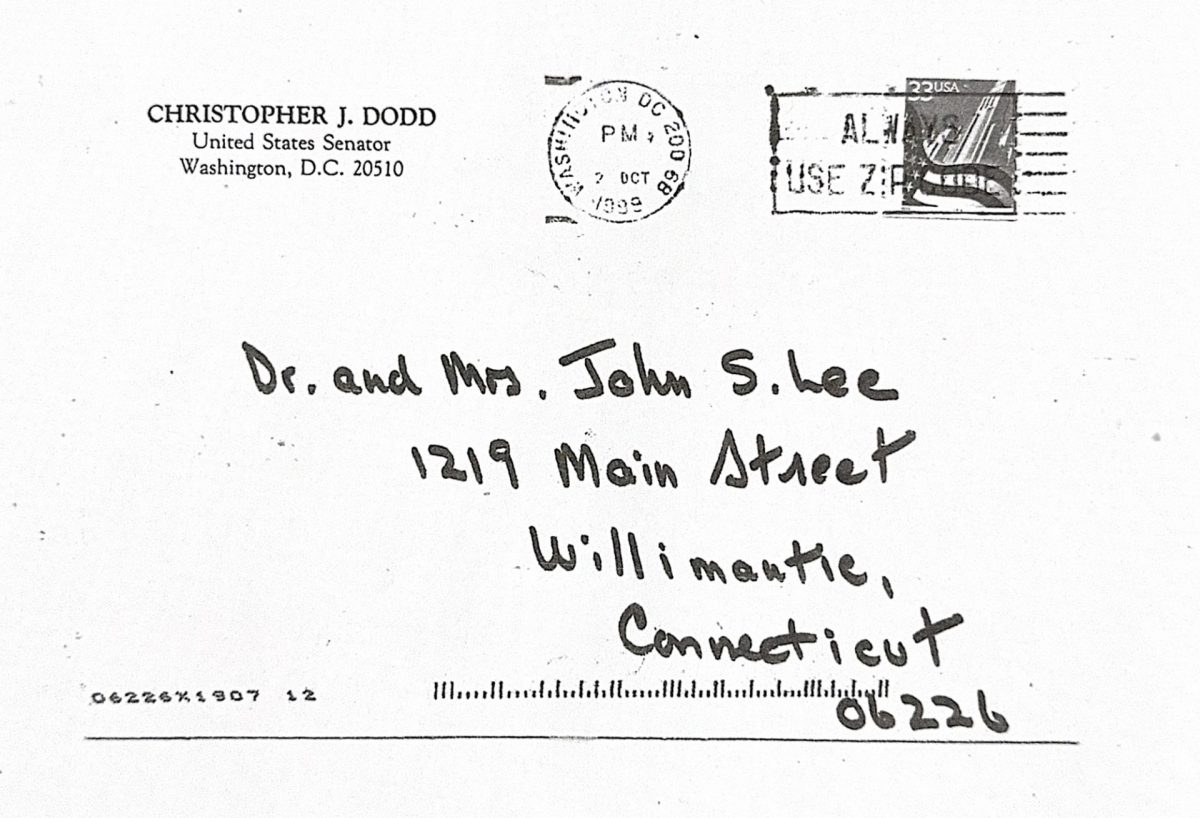 CHRISTOPHER J. DODD
United States Senator
Washington, D.C. 20510
WASHINGTON DC 200 6B
PM
2 OCT
1999
33USA
ALWAYS
USE ZIP CODE
Dr. and Mrs. John S. Lee
1219 Main Street
Willimantic,
Connecticut
06226
06226%1907 12